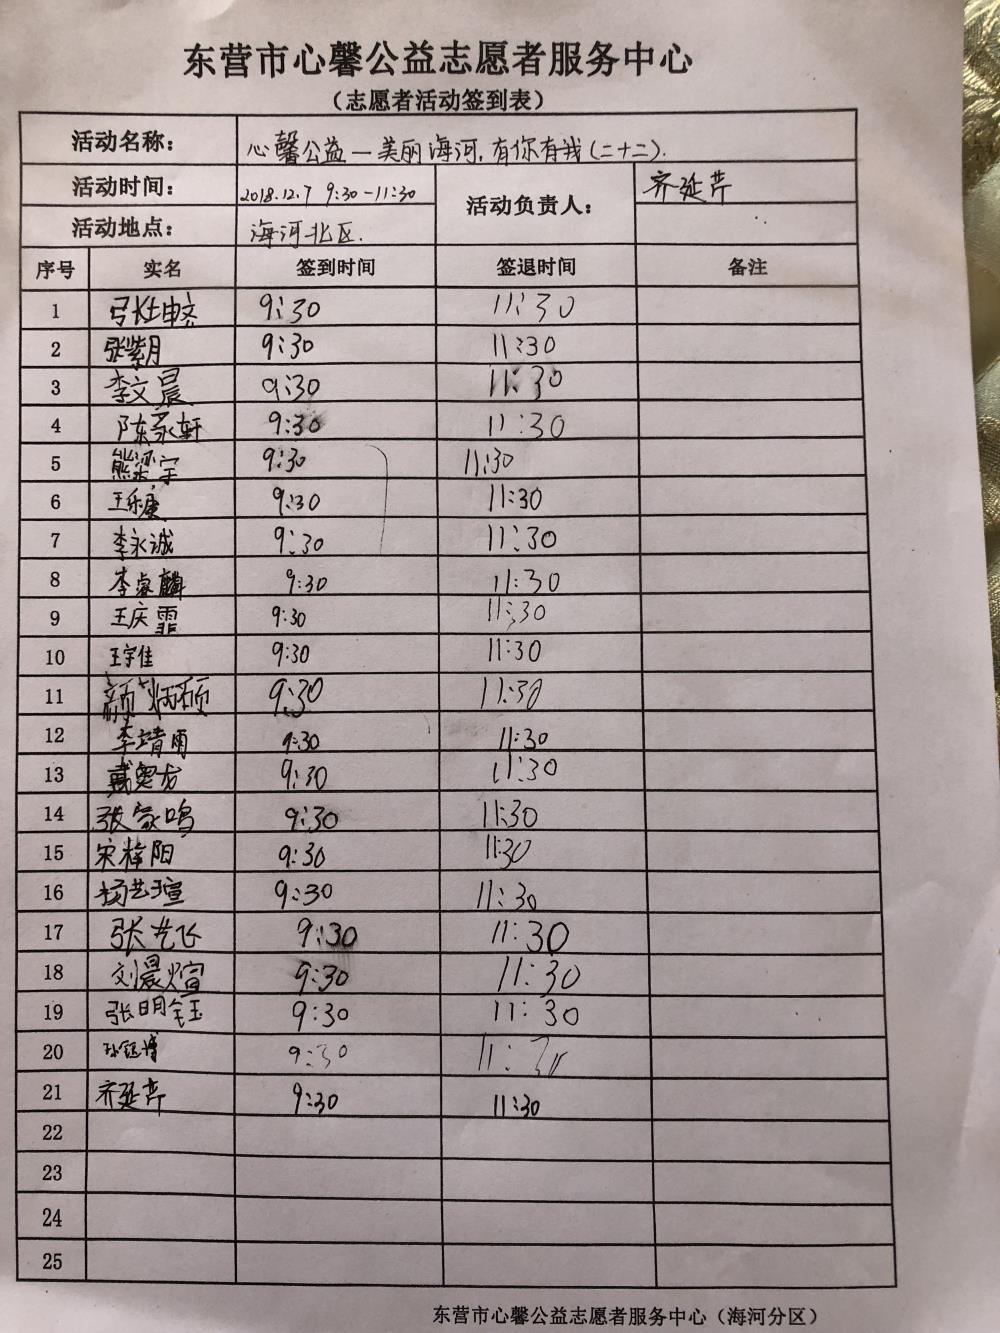 东营市心馨公益志愿者服务中心
(志愿者活动签到表)
活动名称: 心馨公益—美丽海河,有你有我(二十二).
活动时间: 2018.12.7 9:30-11:30 活动负责人: 齐延芹
活动地点: 海河北区.
序号 实名 签到时间 签退时间 备注
1 9:30 11:30
2 张紫月 9:30 11:30
3 李文晨 9:30 11:30
4 陈永轩 9:30 11:30
5 熊梁宇 9:30 11:30
6 王乐康 9:30 11:30
7 李永诚 9:30 11:30
8 李睿麟 9:30 11:30
9 王庆霏 9:30 11:30
10 王宇佳 9:30 11:30
11 颜炳硕 9:30 11:30
12 李靖雨 9:30 11:30
13 戴奥龙 9:30 11:30
14 张家鸣 9:30 11:30
15 宋梓阳 9:30 11:30
16 杨艺瑄 9:30 11:30
17 张艺飞 9:30 11:30
18 刘晨煊 9:30 11:30
19 张明钰 9:30 11:30
20 9:30 11:30
21 齐延芹 9:30 11:30
22
23
24
25
东营市心馨公益志愿者服务中心(海河分区)